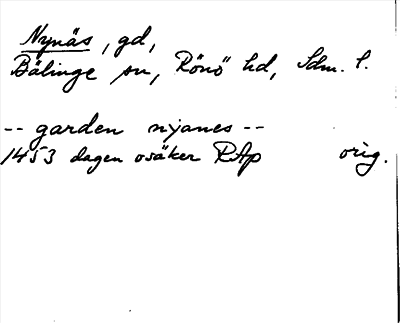 Nynäs, gd,
Bälinge sn, Rönö hd, Sdm. l.
-- garden nyanes --
1453 dagen osäker RAp orig.